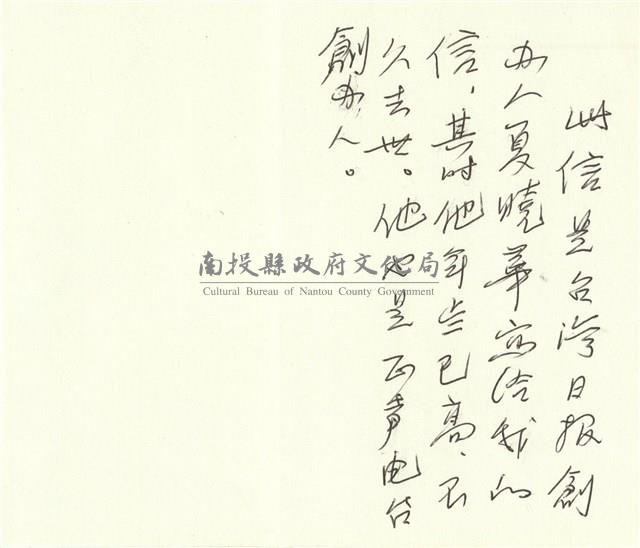 此信是台湾日报創
办人夏曉華寫给我的
信，其时他年岁已高，不
久去世。他也是正声电台
創办人。
南投縣政府文化局
Cultural Bureau of Nantou County Government